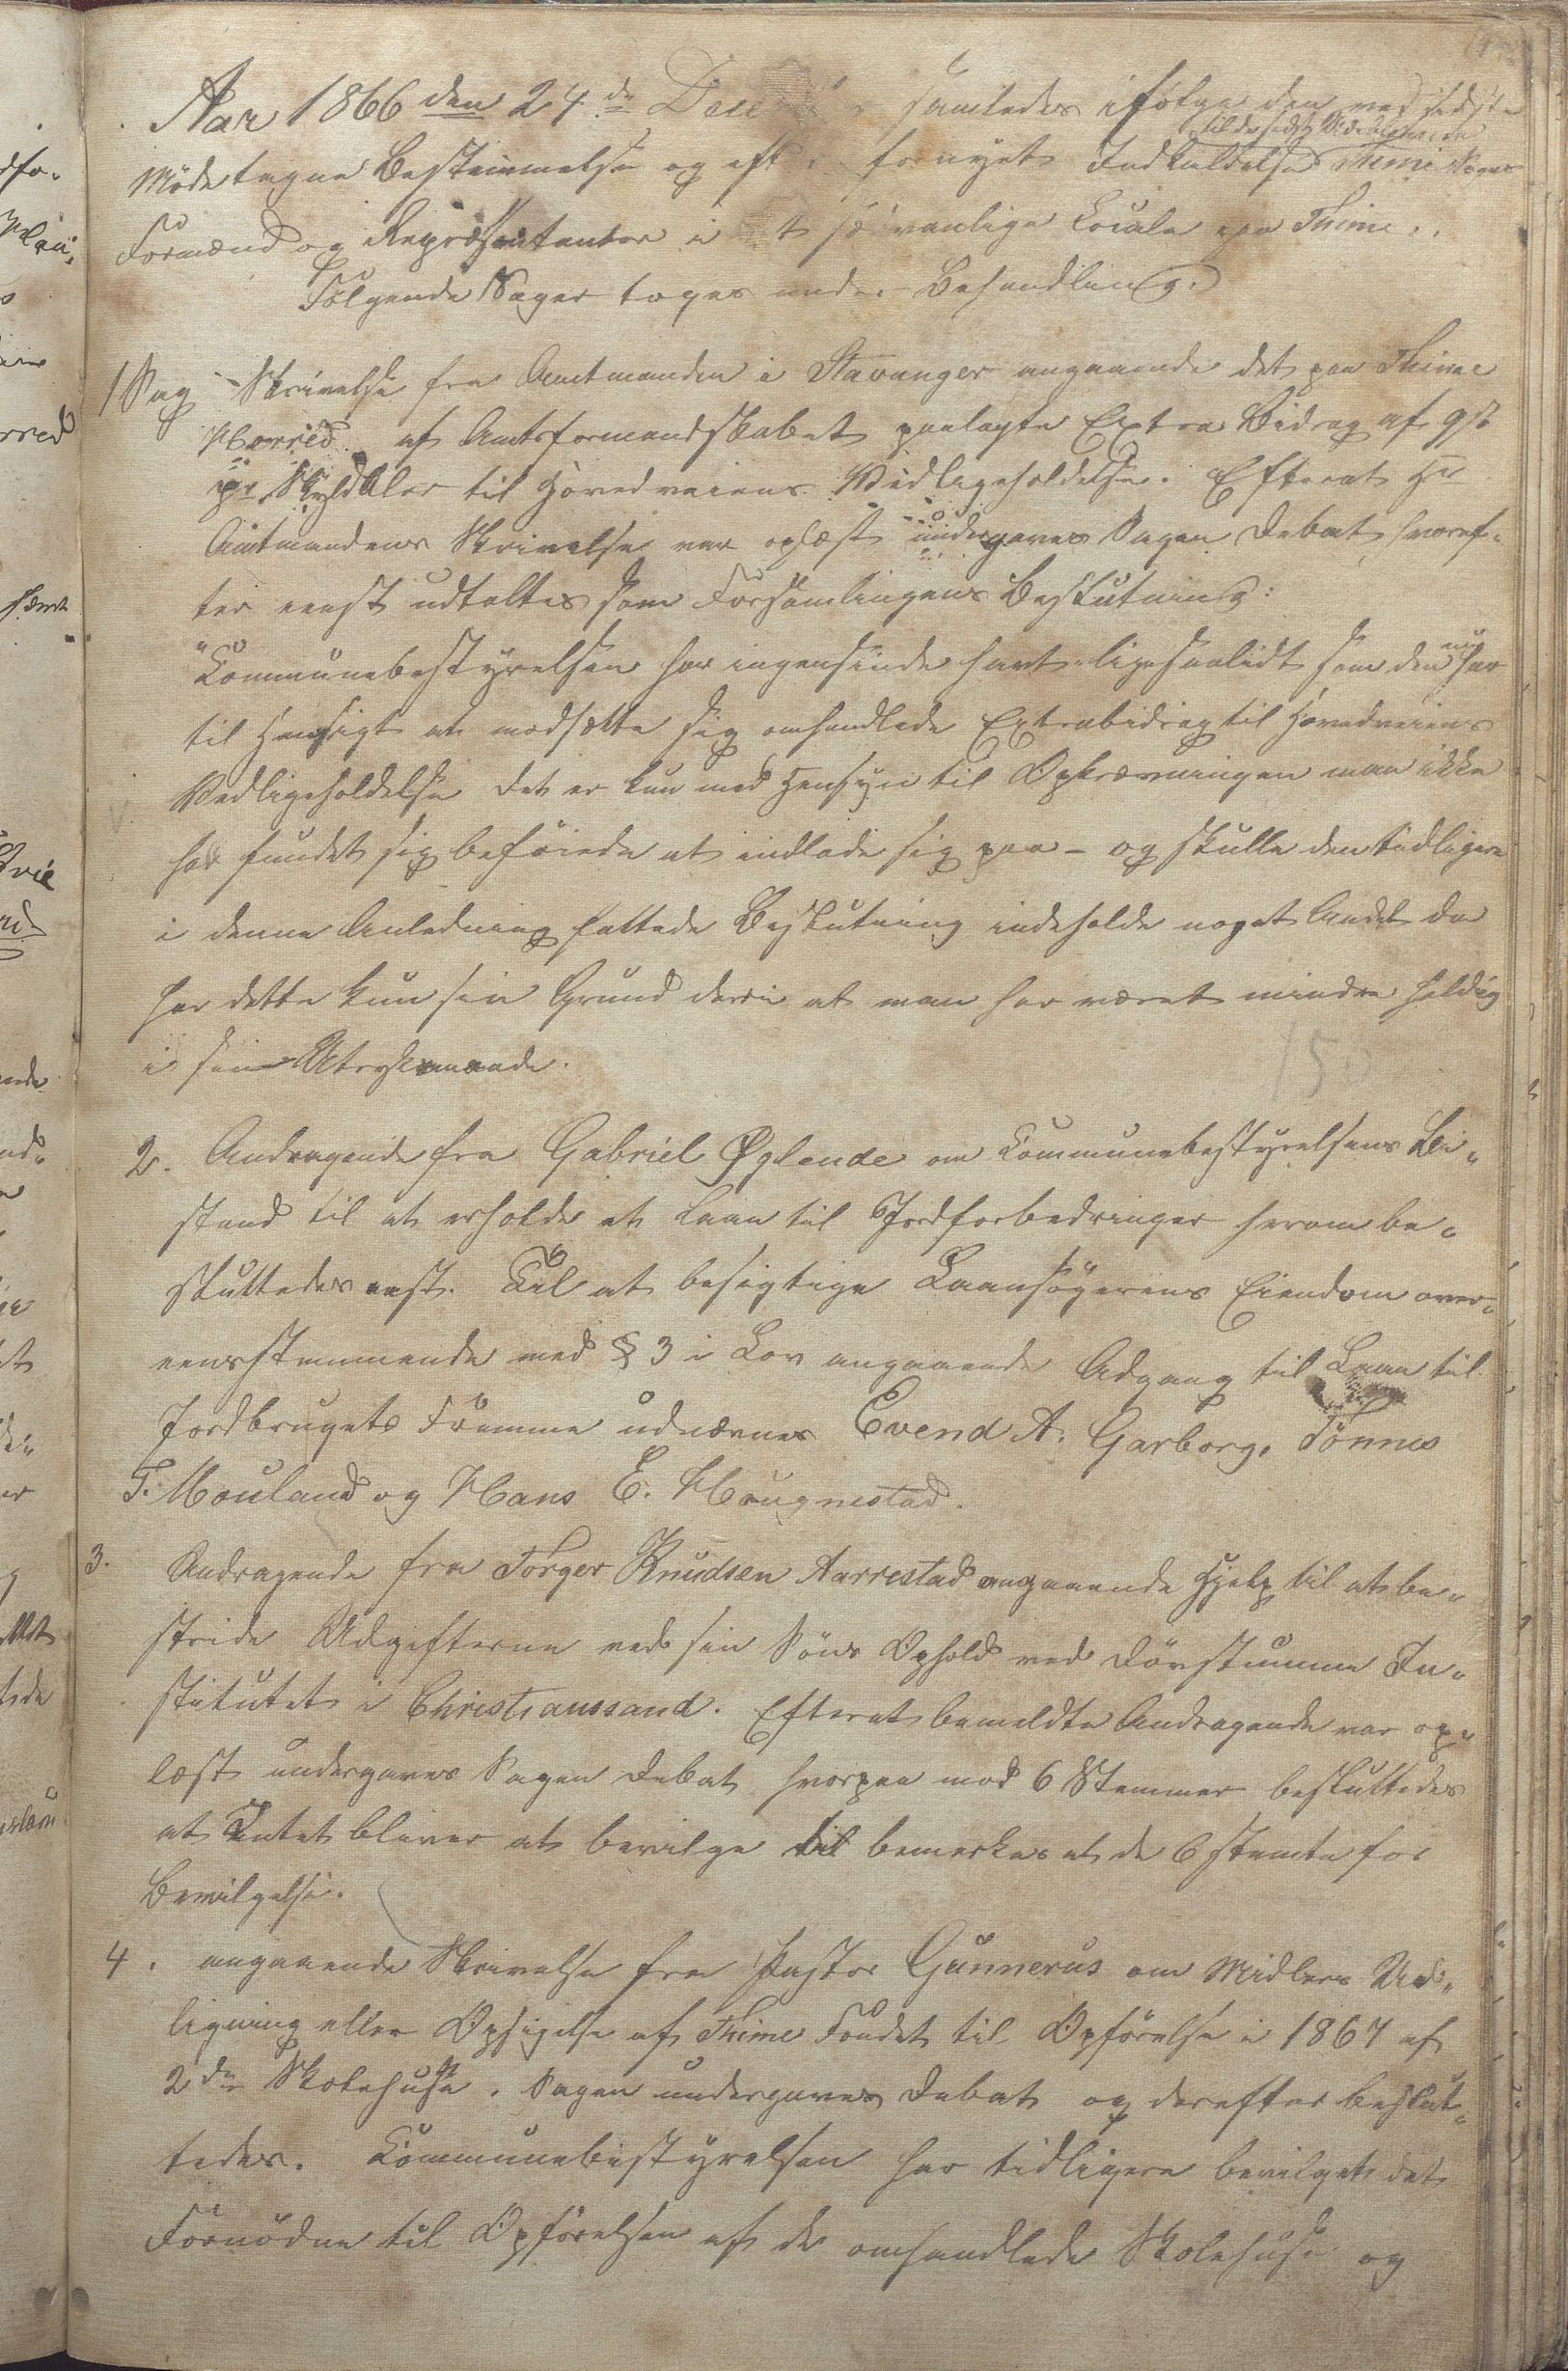 Aar 1866 den 24de Dece samledes ifølge den ved sidste
til des sidst
Møde tagne Bestemmelse og eft fornyet Indkaldelse Thime Sogns
Formænd og Repræsentanter i t sædvanlige Locale paa Thime.
Følgende Sager toges under Behandling.
1 Sag Skrivelse fra Amtmanden i Stavanger angaaende det paa Thime
Herred af Amtsformandskabet paalagte Extra Bidrag af 9 ß
pr Skylddaler til Hovedveiens Vedligeholdelse. Efterat Hr
Amtmandens Skrivelse var oplæst undergaves Sagen Debat, hvoref-
ter eenst. udtaltes som Forsamlingens Beslutning:
"Kommunebestyrelsen har ingensinde havt ligesaalidt som den nu har
til Hensigt at modsætte sig omhandlede Extrabidrag til Hovedveiens
Vedligeholdelse det er kun med Hensyn til Opkrævningen man ikke
har fundet sig beføiede at indlade sig paa - og skulle den tidligere
i denne Anledning fattede Beslutning indeholde noget Andet da
har dette kun sin Grund deri at man har været mindre heldig
i sin Utryksmaade.
150
2. Andragende fra Gabriel Øglende om Kommunebestyrelsens Bi-
stand til at erholde et Laan til Jordforbedringer herom be-
sluttedes eenst. Til at besigtige Laansøgerens Eiendom over-
eensstemmende med § 3 i Lov angaaende Adgang til Laan til
Jordbrugets Fremme udnævnes Evend A. Garborg, Tønnes
T. Mouland og Hans E. Hougnestad.
3. Andragende fra Torger Knudsen Aarrestad angaaende Hjelp til at be-
stride Udgifterne ved sin Søns Ophold ved Døvstumme In-
stitutet i Christianssand. Efterat bemeldte Andragende var op-
læst undergaves Sagen Debat hvorpaa mod 6 Stemmer besluttedes
at Intet bliver at bevilge til bemerkes at de 6 stemte for
Bevilgelse.
4. angaaende Skrivelse fra Pastor Gunnerus om Midlers Ud-
ligning eller Opsigelse af Thime Fondet til Opførelse i 1867 af
2de Skolehuse. Sagen undergaves Debat og derefter beslut-
tedes. Kommunebestyrelsen har tidligere bevilget det
Fornødne til Opførelsen af de omhandlede Skolehuse og